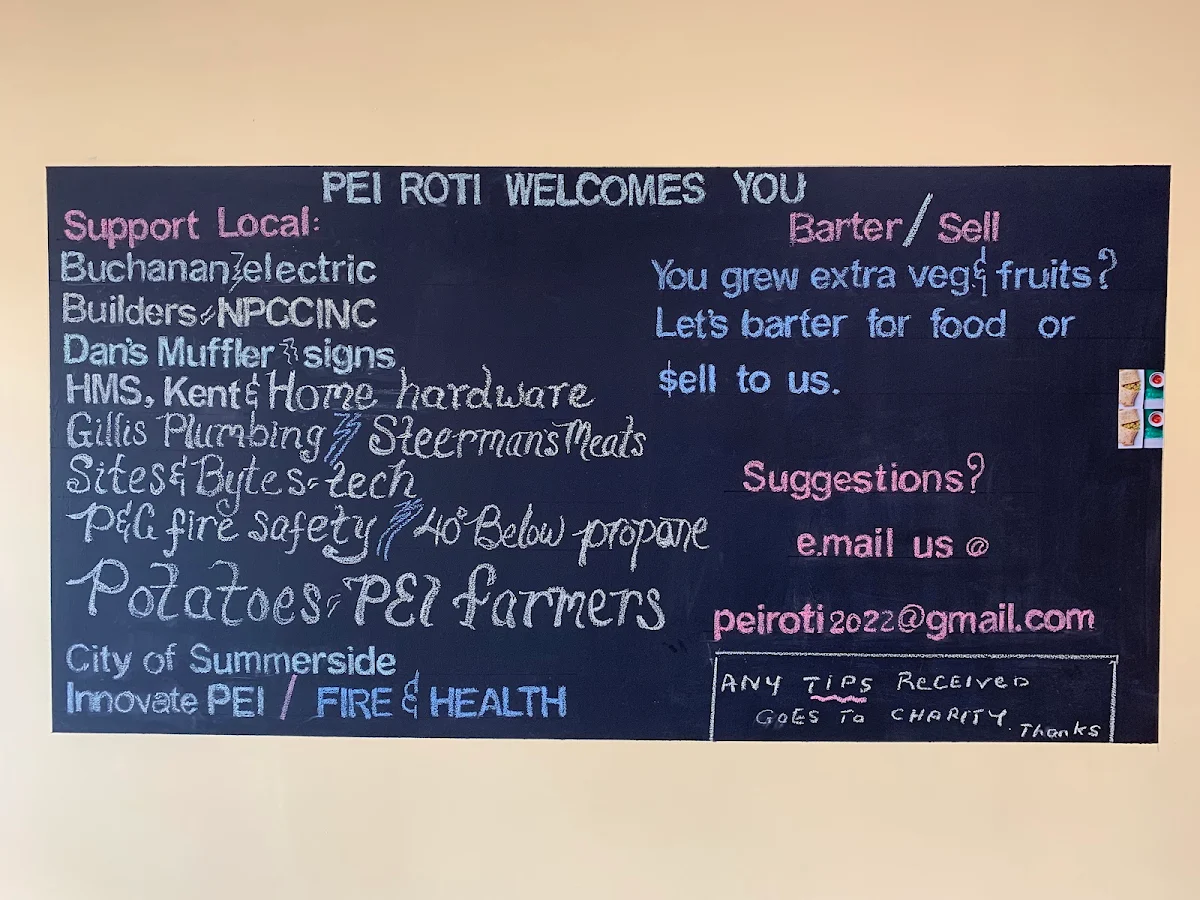 PEI ROTI WELCOMES YOU
Support Local:
Buchanan electric
Builders NPCCINC
Dan's Muffler signs
HMS, Kent & Home hardware
Gillis Plumbing Steerman's Meats
Sites & Bytes tech
P&G fire safety 40° Below propane
Potatoes PEI farmers
City of Summerside
Innovate PEI / FIRE & HEALTH
Barter / Sell
You grew extra veg & fruits?
Let's barter for food or
$ell to us.
Suggestions?
e.mail us @
peiroti2022@gmail.com
ANY TIPS RECEIVED
GOES TO CHARITY.
Thanks